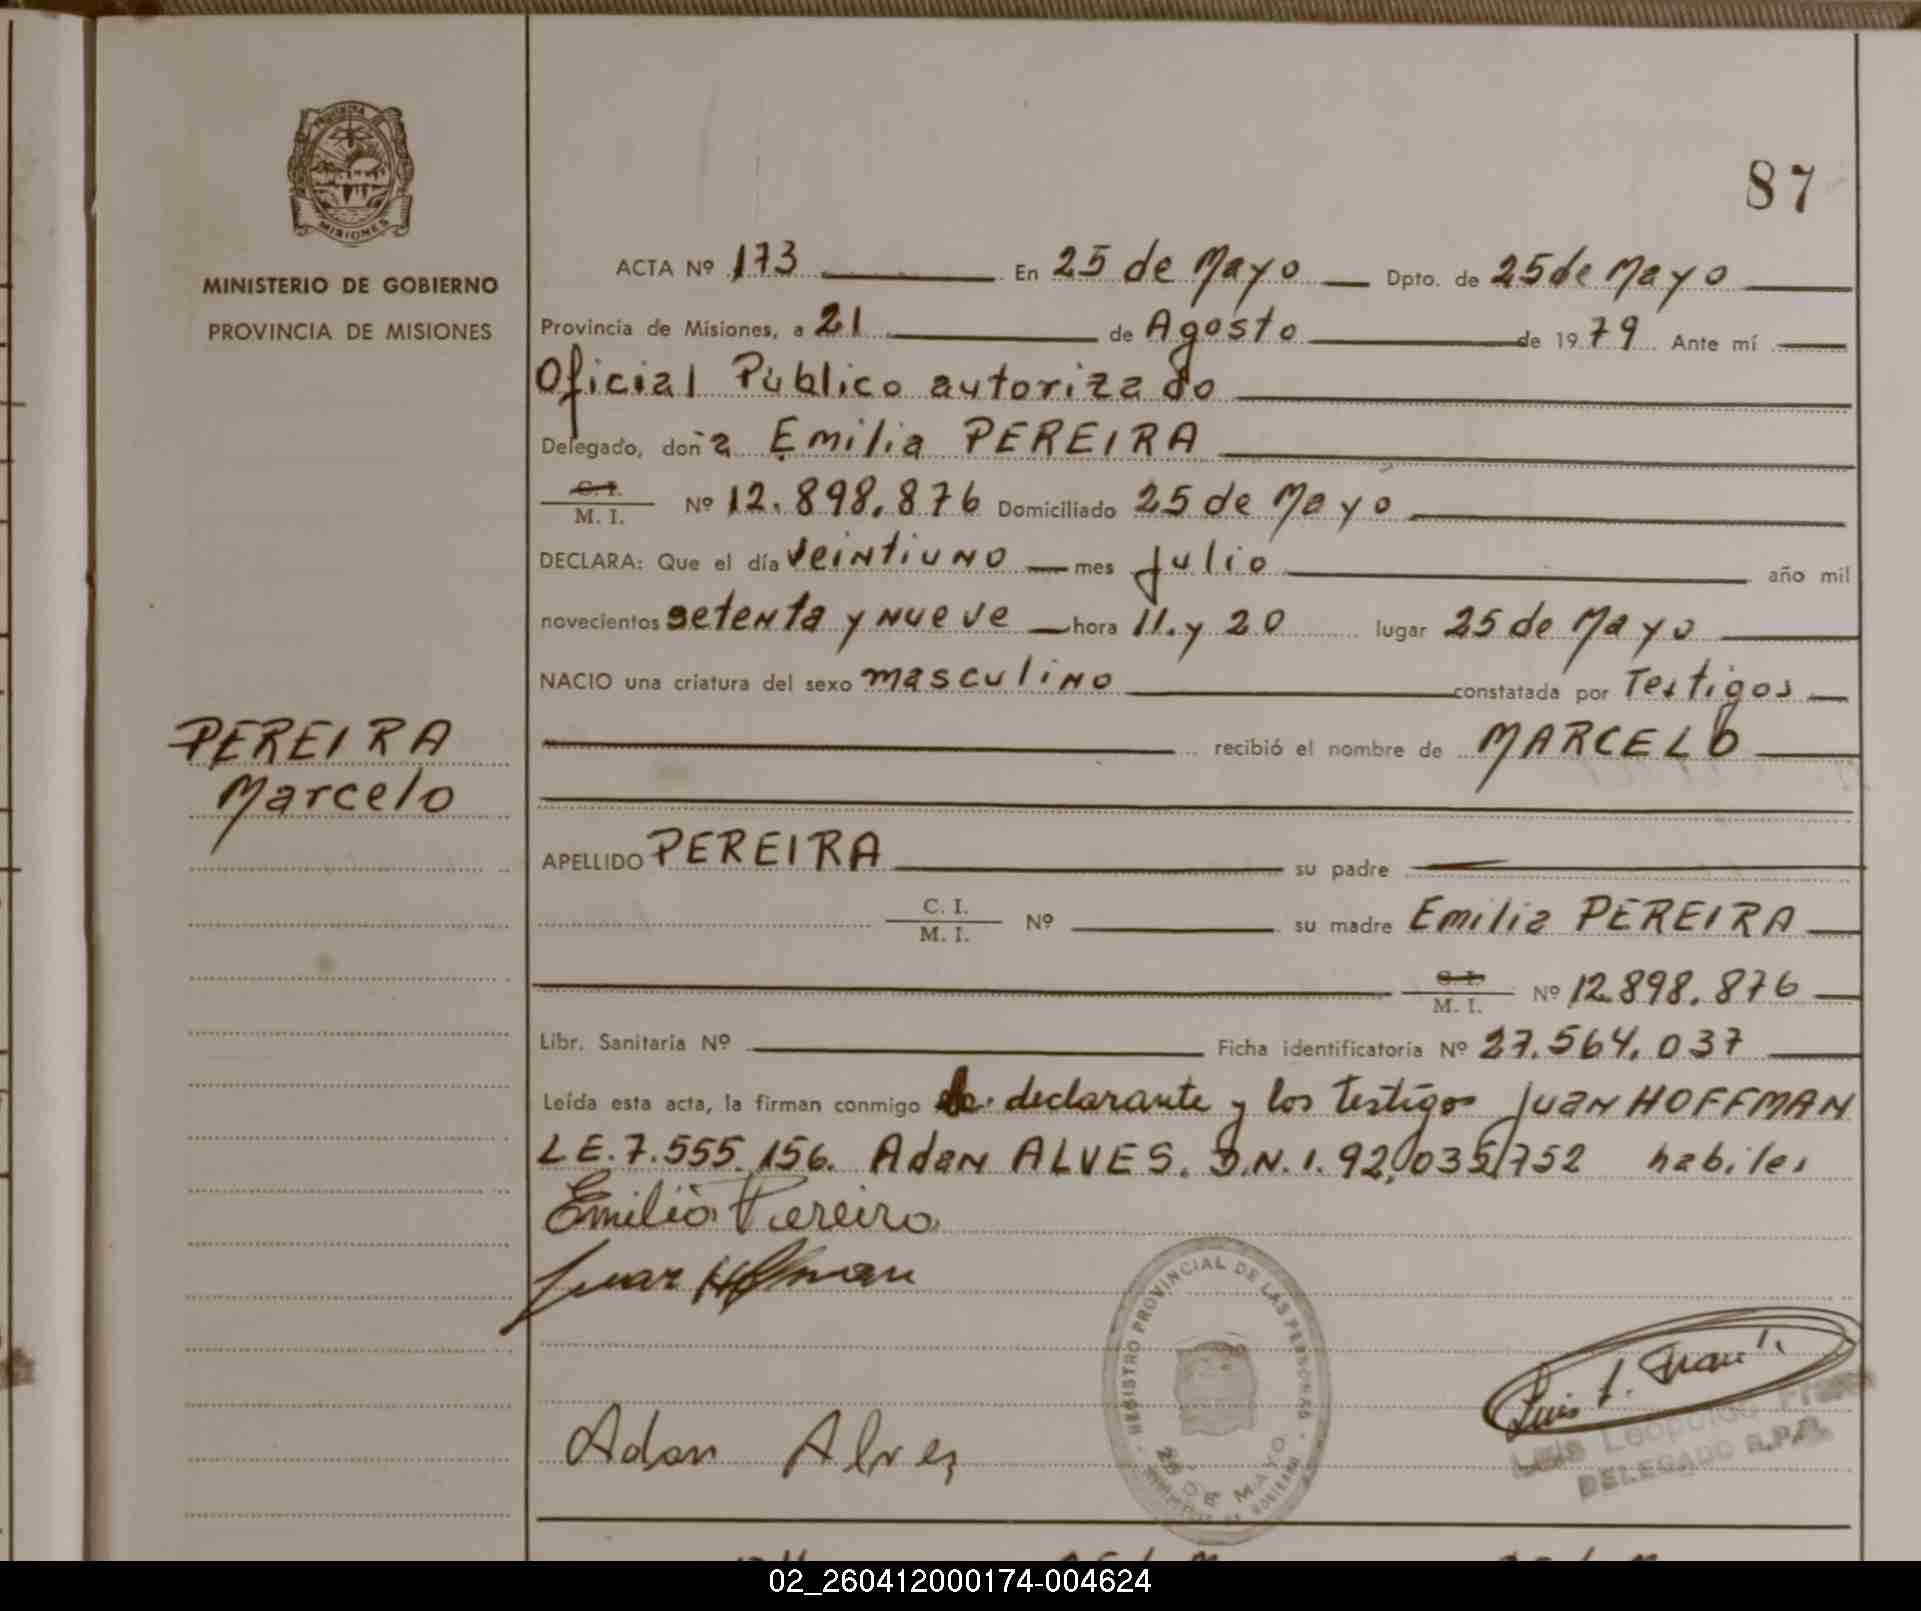 87
PROVINCIA DE
MISIONES
MINISTERIO DE GOBIERNO
PROVINCIA DE MISIONES
ACTA Nº 173 En 25 de Mayo Dpto. de 25 de Mayo
Provincia de Misiones, a 21 de Agosto de 1979 Ante mí
Oficial Público autorizado
Delegado, doña Emilia PEREIRA
C. I.
M. I. Nº 12.898.876 Domiciliado 25 de Mayo
DECLARA: Que el día veintiuno mes Julio año mil
novecientos setenta y nueve hora 11. y 20 lugar 25 de Mayo
NACIO una criatura del sexo masculino constatada por Testigos
recibió el nombre de MARCELO
PEREIRA
Marcelo
APELLIDO PEREIRA su padre
C. I.
M. I. Nº su madre Emilia PEREIRA
C. I.
M. I. Nº 12.898.876
Libr. Sanitaria Nº Ficha identificatoria Nº 27.564.037
Leída esta acta, la firman conmigo declarante y los testigos Juan HOFFMAN
LE.7.555.156. Adan ALVES. D.N.I. 92,035,752 habiles
Emilia Pereira
Juan Hofman
Adan Alves
REGISTRO PROVINCIAL DE LAS PERSONAS
25 DE MAYO
Luis L.
Luis Leopoldo
DELEGADO R.P.P.
02_260412000174-004624